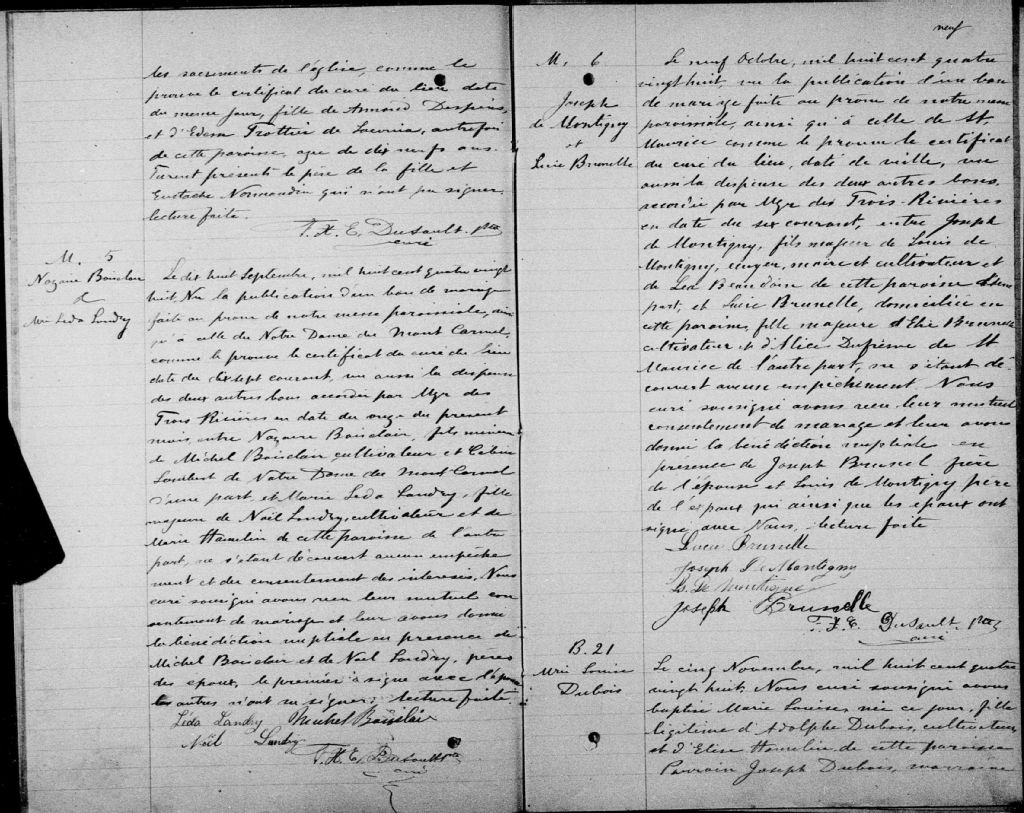 les sacrements de l'église, comme le
prouve le certificat du curé du lieu daté
du même jour, fille de Armand Despins,
et d'Edesse Trottier de autrefois
de cette paroisse, agée de dix neufs ans.
Furent presents le père de la fille et
Eustache Normandin qui n'ont pu signer
lecture faite.
F. X. E. Dusault. ptre
curé
M. 5
Nazaire Boisclair
&
Mrie Leda Landry
Le dix huit Septembre, mil huit cent quatre vingt
huit, Vu la publication d'un ban de mariage
faite au prone de notre messe paroissiale, ainsi
qu'à celle de Notre Dame du Mont Carmel,
comme le prouve le certificat du curé du lieu
daté du dix sept courant, vu aussi la dispense
des deux autres bans accordée par Mgr des
Trois Rivières en date du onze du present
mois, entre Nazaire Boisclair, fils mineur
de Michel Boisclair, cultivateur et Célina
Lambert de Notre Dame du Mont Carmel
d'une part, et Marie Leda Landry, fille
majeure de Noël Landry, cultivateur et de
Marie Hamelin de cette paroisse de l'autre
part, ne s'étant découvert aucun empêche
ment et du consentement des interessés, Nous
curé sousigné avons reçu leur mutuel con
sentement de mariage et leur avons donné
la bénédiction nuptiale en presence de
Michel Boisclair et de Noël Landry, peres
des epoux, le premier a signé avec l'épouse
les autres n'ont su signer; lecture faite.
Léda Landry Michel Boisclair
Noël Landry
F. X. E. Dusault ptre
curé
neuf
M. 6
Joseph
de Montigny
et
Lucie Brunelle
Le neuf Octobre, mil huit cent quatre
vingt huit, vu la publication d'un ban
de mariage faite au prone de notre messe
paroissiale, ainsi qu'à celle de St
Maurice comme le prouve le certificat
du curé du lieu, daté de veille, vu
aussi la dispense des deux autres bans,
accordée par Mgr des Trois-Rivières
en date du six courant, entre Joseph
de Montigny, fils majeur de Louis de
Montigny, écuyer, maire et cultivateur et
de Léa Beaudoin de cette paroisse d'une
part, et Lucie Brunelle, domiciliée en
cette paroisse, fille majeure d'Elie Brunelle
cultivateur et d'Alice Dufresne de St
Maurice de l'autre part, ne s'étant dé-
couvert aucun empêchement. Nous
curé sousigné avons reçu leur mutuel
consentement de mariage et leur avons
donné la bénédiction nuptiale en
presence de Joseph Brunel frère
de l'épouse et Louis de Montigny père
de l'époux qui ainsi que les époux ont
signé avec Nous, lecture faite
Lucie Brunelle
Joseph De Montigny
L. De Montigny
Joseph Brunelle
F. X. E. Dusault. ptre
curé
B. 21
Mrie Louise
Dubois
Le cinq Novembre, mil huit cent quatre
vingt huit, Nous curé sousigné avons
baptisé Marie Louise, née ce jour, fille
légitime d'Adolphe Dubois, cultivateur
et d'Elise Hamelin de cette paroisse
Parrain Joseph Dubois, marraine